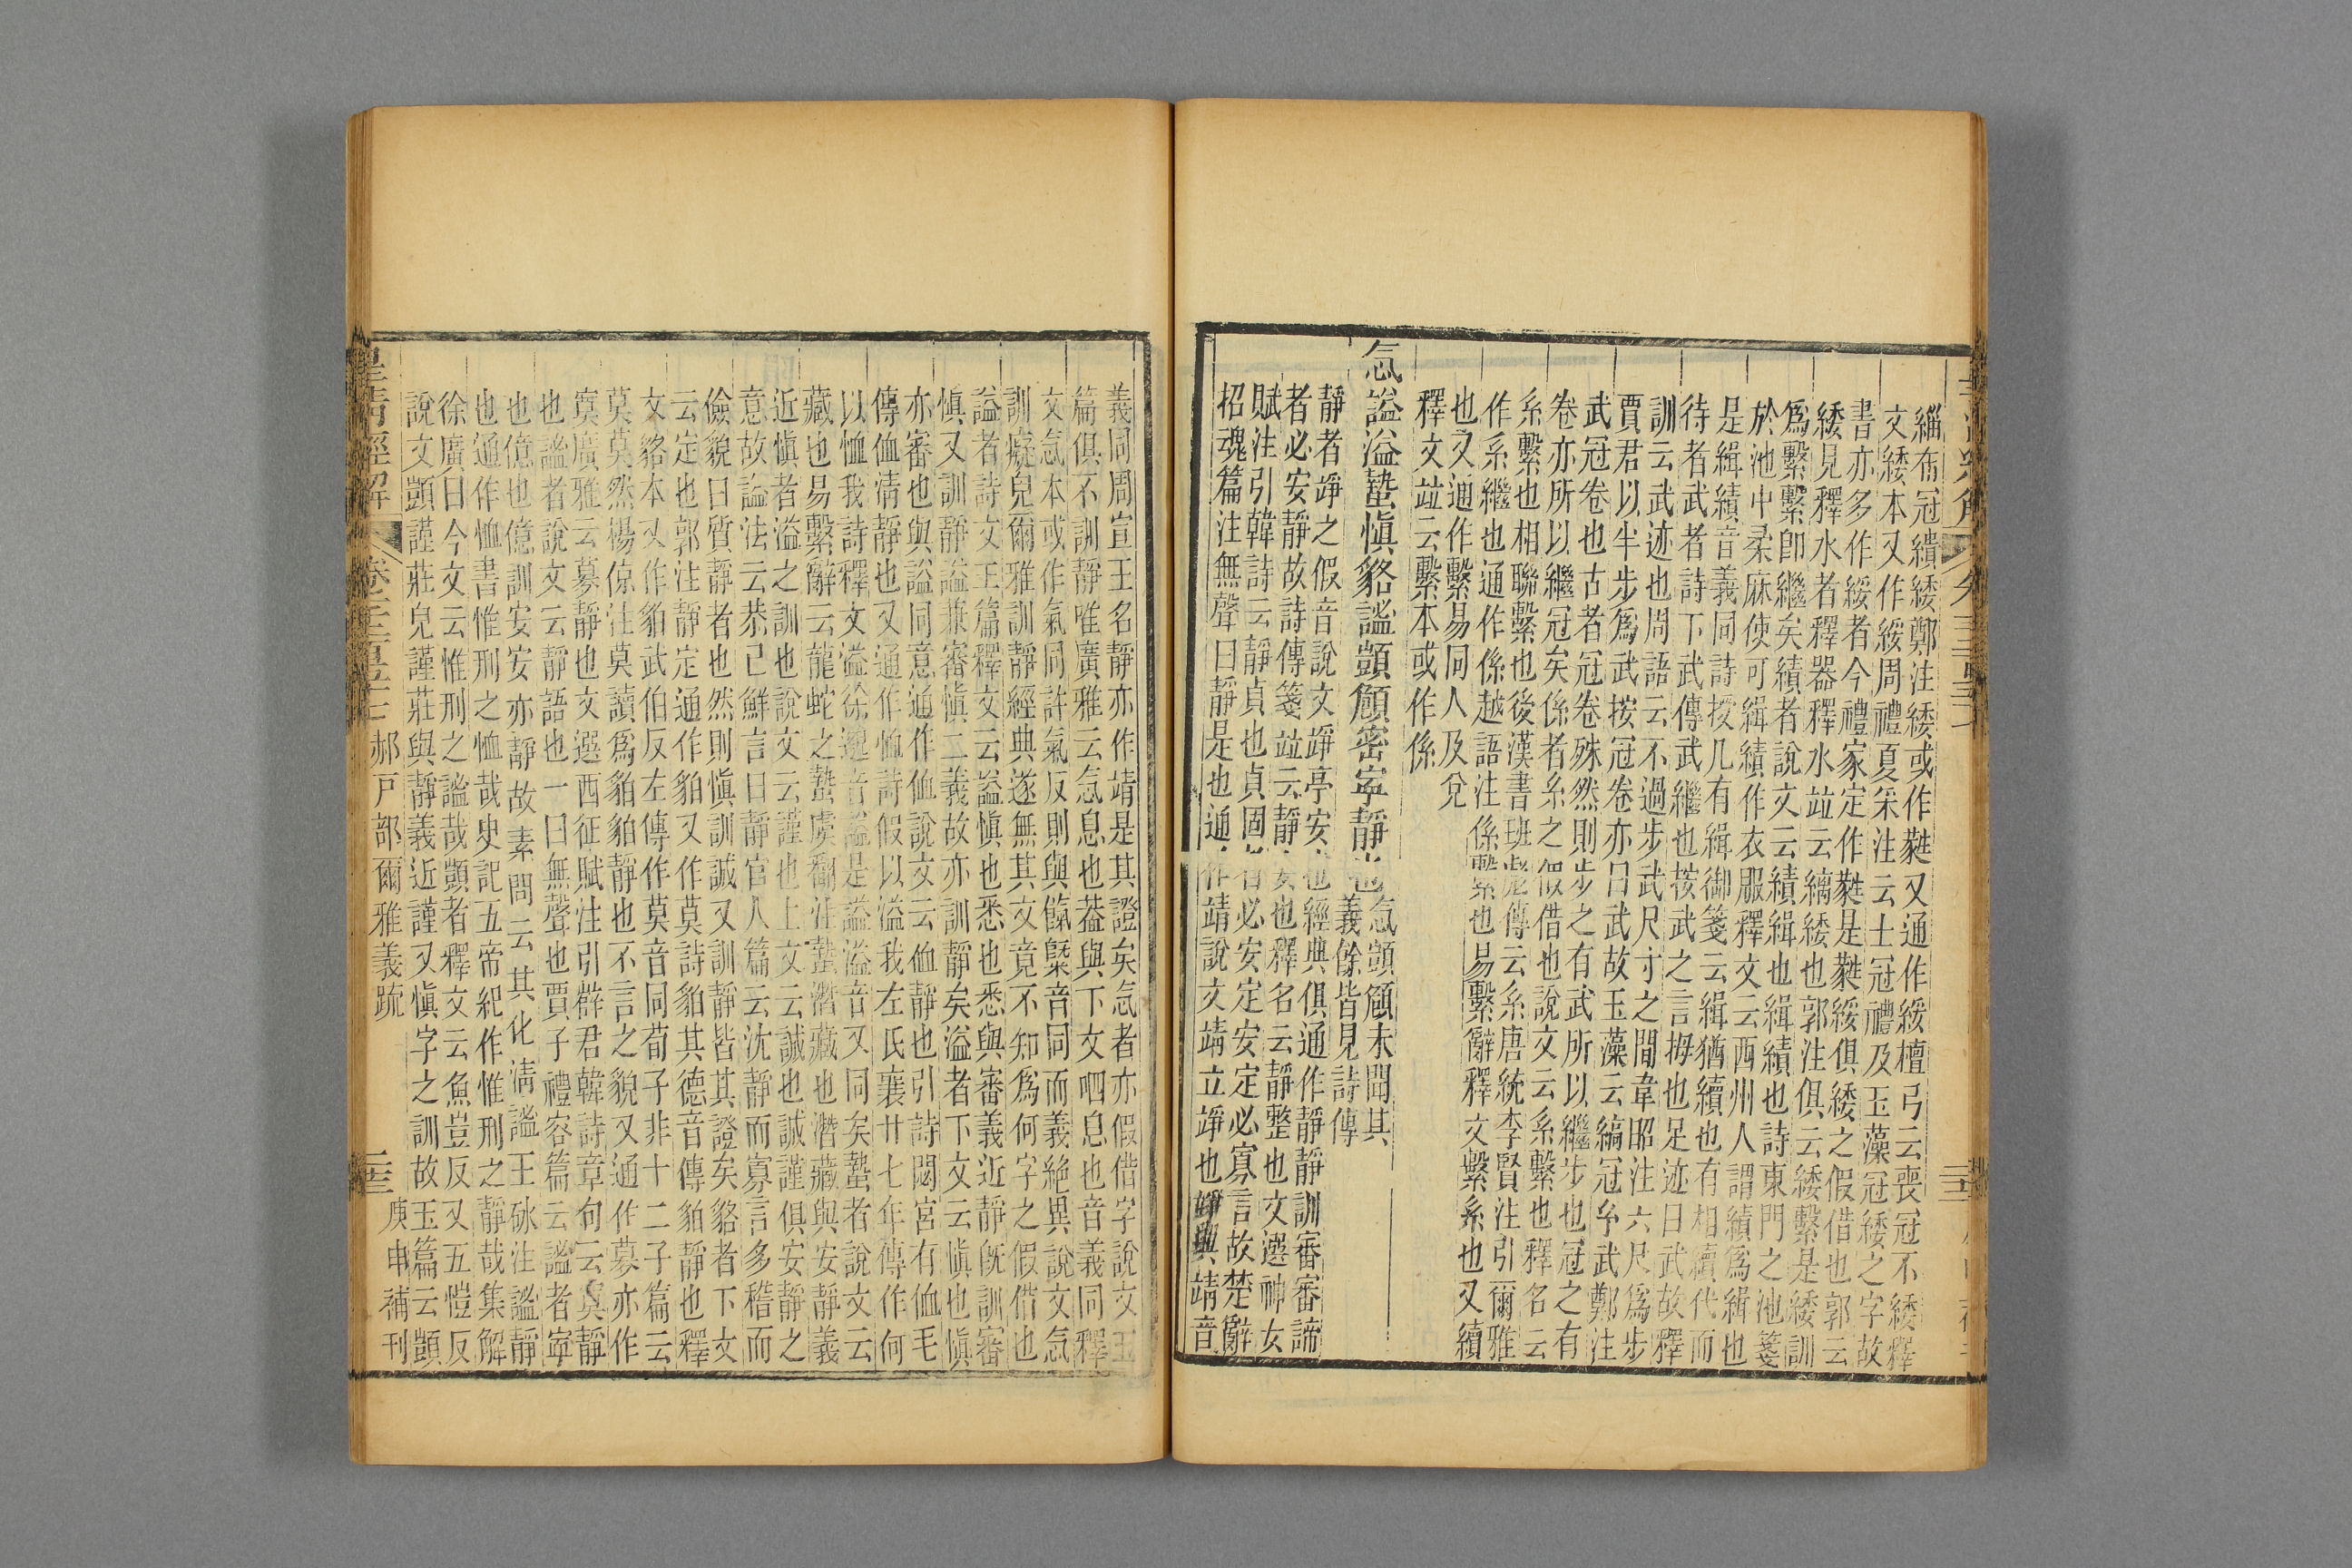 緇布冠繢緌鄭注緌或作蕤又通作綏檀弓云喪冠不緌釋
文緌本又作綏周禮夏采注云士冠禮及玉藻冠緌之字故
書亦多作綏者今禮家定作蕤是蕤綏俱緌之假借也郭云
緌見釋水者釋器釋水竝云縭緌也郭注俱云緌繫是緌訓
爲繫繫卽繼矣績者說文云績緝也緝績也詩東門之池箋
於池中柔麻使可緝績作衣服釋文云西州人謂績爲緝也
是緝績音義同詩授几有緝御箋云緝猶續也有相續代而
待者武者詩下武傳武繼也按武之言拇也足迹曰武故釋
訓云武迹也周語云不過步武尺寸之間韋昭注六尺爲步
賈君以半步爲武按冠卷亦曰武故玉藻云縞冠玄武鄭注
武冠卷也古者冠卷殊然則步之有武所以繼步也冠之有
卷亦所以繼冠矣係者糸之假借也說文云系繫也釋名云
系繫也相聯繫也後漢書班彪傳云系唐統李賢注引爾雅
作系繼也通作係越語注係繫也易繫辭釋文繫系也又續
也又通作繫易同人及兌
釋文竝云繫本或作係
忥謚溢蟄愼貉謐顗頠密寧靜也忥顗頠未聞其義餘皆見詩傳
靜者竫之假音說文竫亭安也經典俱通作靜靜訓審審諦
者必安靜故詩傳箋竝云靜安也釋名云靜整也文選神女
賦注引韓詩云靜貞也貞固者必安定安定必寡言故楚辭
招魂篇注無聲曰靜是也通作靖說文靖立竫也竫與靖音
義同周宣王名靜亦作靖是其證矣忥者亦假借字說文玉
篇俱不訓靜唯廣雅云忥息也葢與下文呬息也音義同釋
文忥本或作氣同許氣反則與餼槩音同而義絶異說文忥
訓癡皃爾雅訓靜經典遂無其文竟不知爲何字之假借也
謚者詩文王篇釋文云謚愼也悉也悉與審義近靜旣訓審
愼又訓靜謚兼審愼二義故亦訓靜矣溢者下文云愼也愼
亦審也與謚同意通作侐說文云侐靜也引詩閟宮有侐毛
傳侐淸靜也又通作恤詩假以溢我左氏襄廿七年傳作何
以恤我詩釋文溢徐邈音謚是謚溢音又同矣蟄者說文云
藏也易繫辭云龍蛇之蟄虞翻注蟄潛藏也潛藏與安靜義
近愼者溢之訓也說文云謹也上文云誠也誠謹俱安靜之
意故謚法云恭己鮮言曰靜官人篇云沈靜而寡言多稽而
儉貌曰質靜者也然則愼訓誠又訓靜皆其證矣貉者下文
云定也郭注靜定通作貊又作莫詩貊其德音傳貊靜也釋
文貉本又作貊武伯反左傳作莫音同荀子非十二子篇云
莫莫然楊倞注莫讀爲貊貊靜也不言之貌又通作募亦作
寞廣雅云募靜也文選西征賦注引薛君韓詩章句云寞靜
也謐者說文云靜語也一曰無聲也賈子禮容篇云謐者寧
也億也億訓安安亦靜故素問云其化淸謐王砅注謐靜
也通作恤書惟刑之恤哉史記五帝紀作惟刑之靜哉集解
徐廣曰今文云惟刑之謐哉顗者釋文云魚豈反又五愷反
說文顗謹莊皃謹莊與靜義近謹又愼字之訓故玉篇云顗
皇淸經解 卷 郝戸部爾雅義疏 庚申補刊